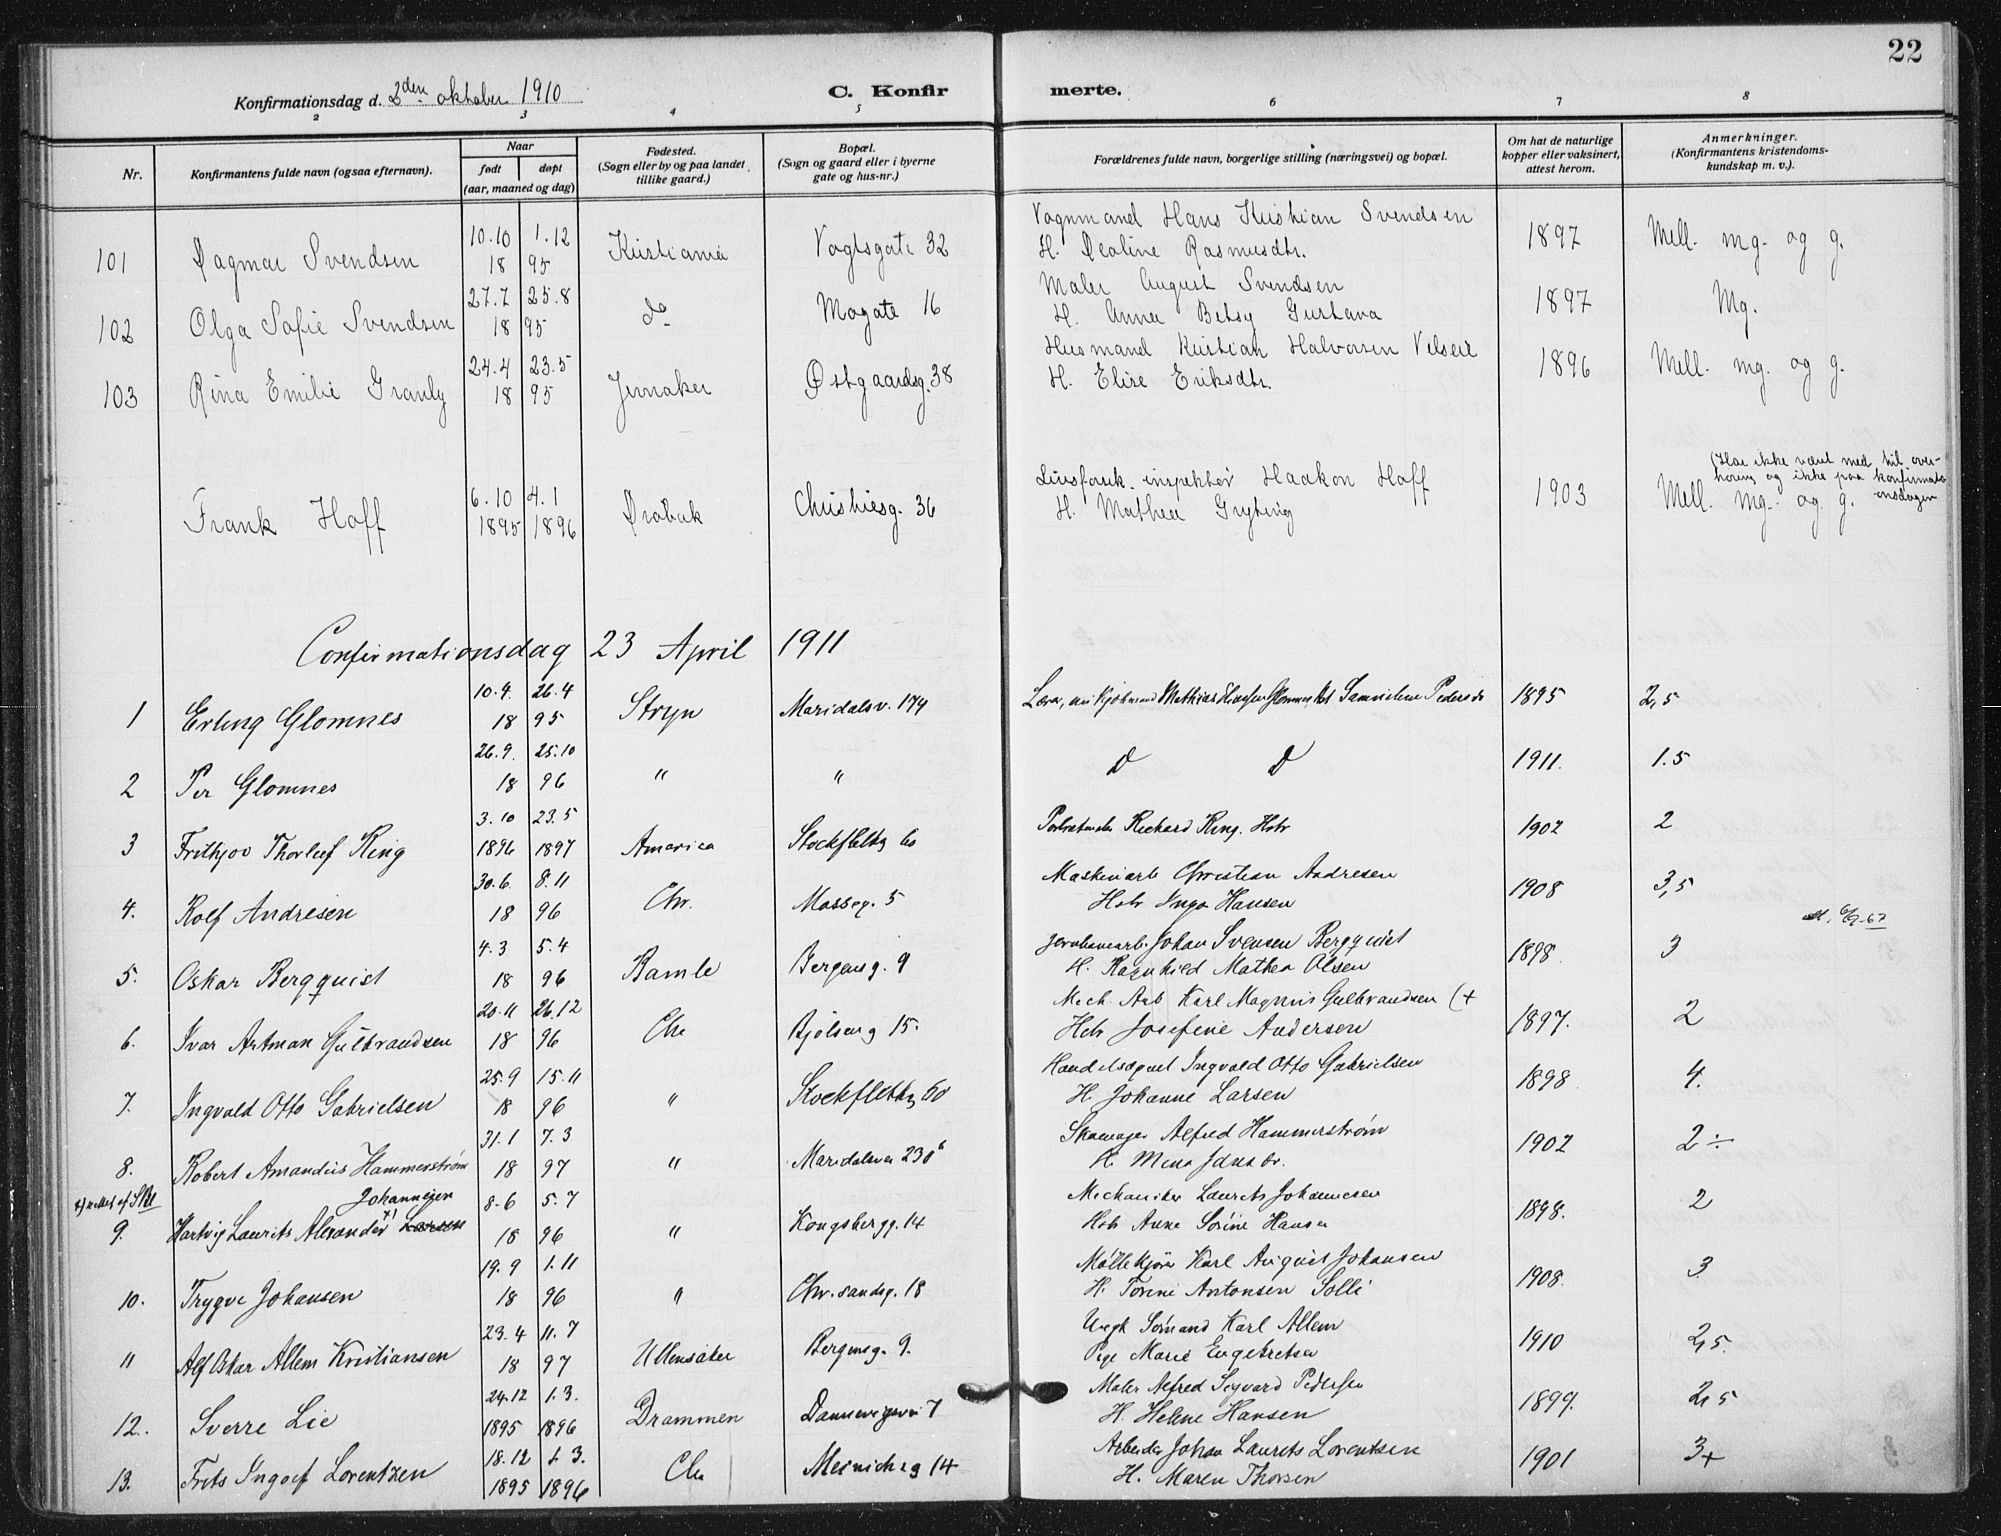 22
Konfirmationsdag d. 2den oktober 1910 C. Konfirmerte.
2 3 4 5 6 7 8
Nr. Konfirmantens fulde navn (ogsaa efternavn). Naar født døpt (aar, maaned og dag) Fødested. (Sogn eller by og paa landet tillike gaard.) Bopæl. (Sogn og gaard eller i byerne gate og hus-nr.) Forældrenes fulde navn, borgerlige stilling (næringsvei) og bopæl. Om hat de naturlige kopper eller vaksinert, attest herom. Anmerkninger. (Konfirmantens kristendomskundskap m. v.).
101 Dagmar Svendsen 10.10 1.12 18 95 Kristiania Vogtsgate 32 Vognmand Hans Kristian Svendsen H. Dealine Rasmusdtr. 1897 Mell. mg. og g.
102 Olga Sofie Svendsen 27.7 25.8 18 95 do Mogate 16 Maler August Svendsen H. Anna Betsy Gustava 1897 Mg.
103 Rina Emilie Granly 24.4 23.5 18 95 Jevnaker Østgaardsg. 38 Husmand Kristian Halvorsen H. Elise Eriksdtr. 1896 Mell. mg. og g.
Frank Hoff 6.10 4.1 1895 1896 Drøbak Christiesg. 36 inspektør Haakon Hoff H. Mathea Gryting 1903 Mell. mg. og g. (Har ikke været med til overhøring og ikke paa konfirmationsdagen
Confirmationsdag 23 April 1911
1 Erling Glomnes 10.9. 26.4 18 95 Stryn Maridalsv. 179 Mathias Glomnes Samueline Pedersdr 1895 2,5
2 Per Glomnes 26.9. 25.10 18 96 " " D D 1911. 1.5
3 Frithjov Thorleif Ring 3.10 23.5 1896 1897 America Stockfletbg 60 Richard Ring. Hstr 1902 2
4. Rolf Andresen 30.6. 8.11 18 96 Chr. Mosseg. 5 Maskinarb Christian Andresen Hstr Inga Hansen 1908 3,5
5. Oskar Bergquist 4.3 5.4 18 96 Bamle Bergensg. 9 Jernbanearb. Johan Svensen Bergquist H. Ragnhild Mathea Olsen 1898. 3
6. Ivar Artman Gulbrandsen 20.11 26.12 18 96 Chr Bjølseng 15. Mech. Arb Karl Magnus Gulbrandsen (+ Hstr Josefine Andersen 1897. 2
7. Ingvald Otto Gabrielsen 25.9 15.11 18 96 " Stockfletbg 60 Handelsagent Ingvald Otto Gabrielsen H. Johanne Larsen 1898. 4.
8. Robert Amandus Hammerstrøm 31.1 7.3 18 97 " Maridalsvn 230b Skomager Alfred Hammerstrøm H. Mina 1902 2÷
9. Hartvig Laurits Alexander Johannesen Larsen 8.6 5.7 18 96 " Kongsbergg. 14 Mechaniker Laurits Johannesen Hstr Anne Sorine Hansen 1898. 2
10. Trygve Johansen 19.9 1.11 18 96 " Chr.sandsg. 18 Møllekjører Karl August Johansen H. Torine Antonsen Solli 1908. 3
11 Alf Oskar Allem Kristiansen 23.4 11.7 18 97 Ullensaker Bergensg. 9. Ungk Sømand Karl Allem Pige Marie Engebretsen 1910 2,5.
12. Sverre Lie 24.12 1.3. 1895 1896 Drammen Dannevigsvei 7 Maler Alfred Sigvard Pedersen H. Helene Hansen 1899. 2,5
13. Frits Ingolf Lorentzen 18.12 1.3. 1895 1896 Chr Meinichsg 14 Arbeider Johan Laurits Lorentsen H. Maren Thorsen 1901 3+